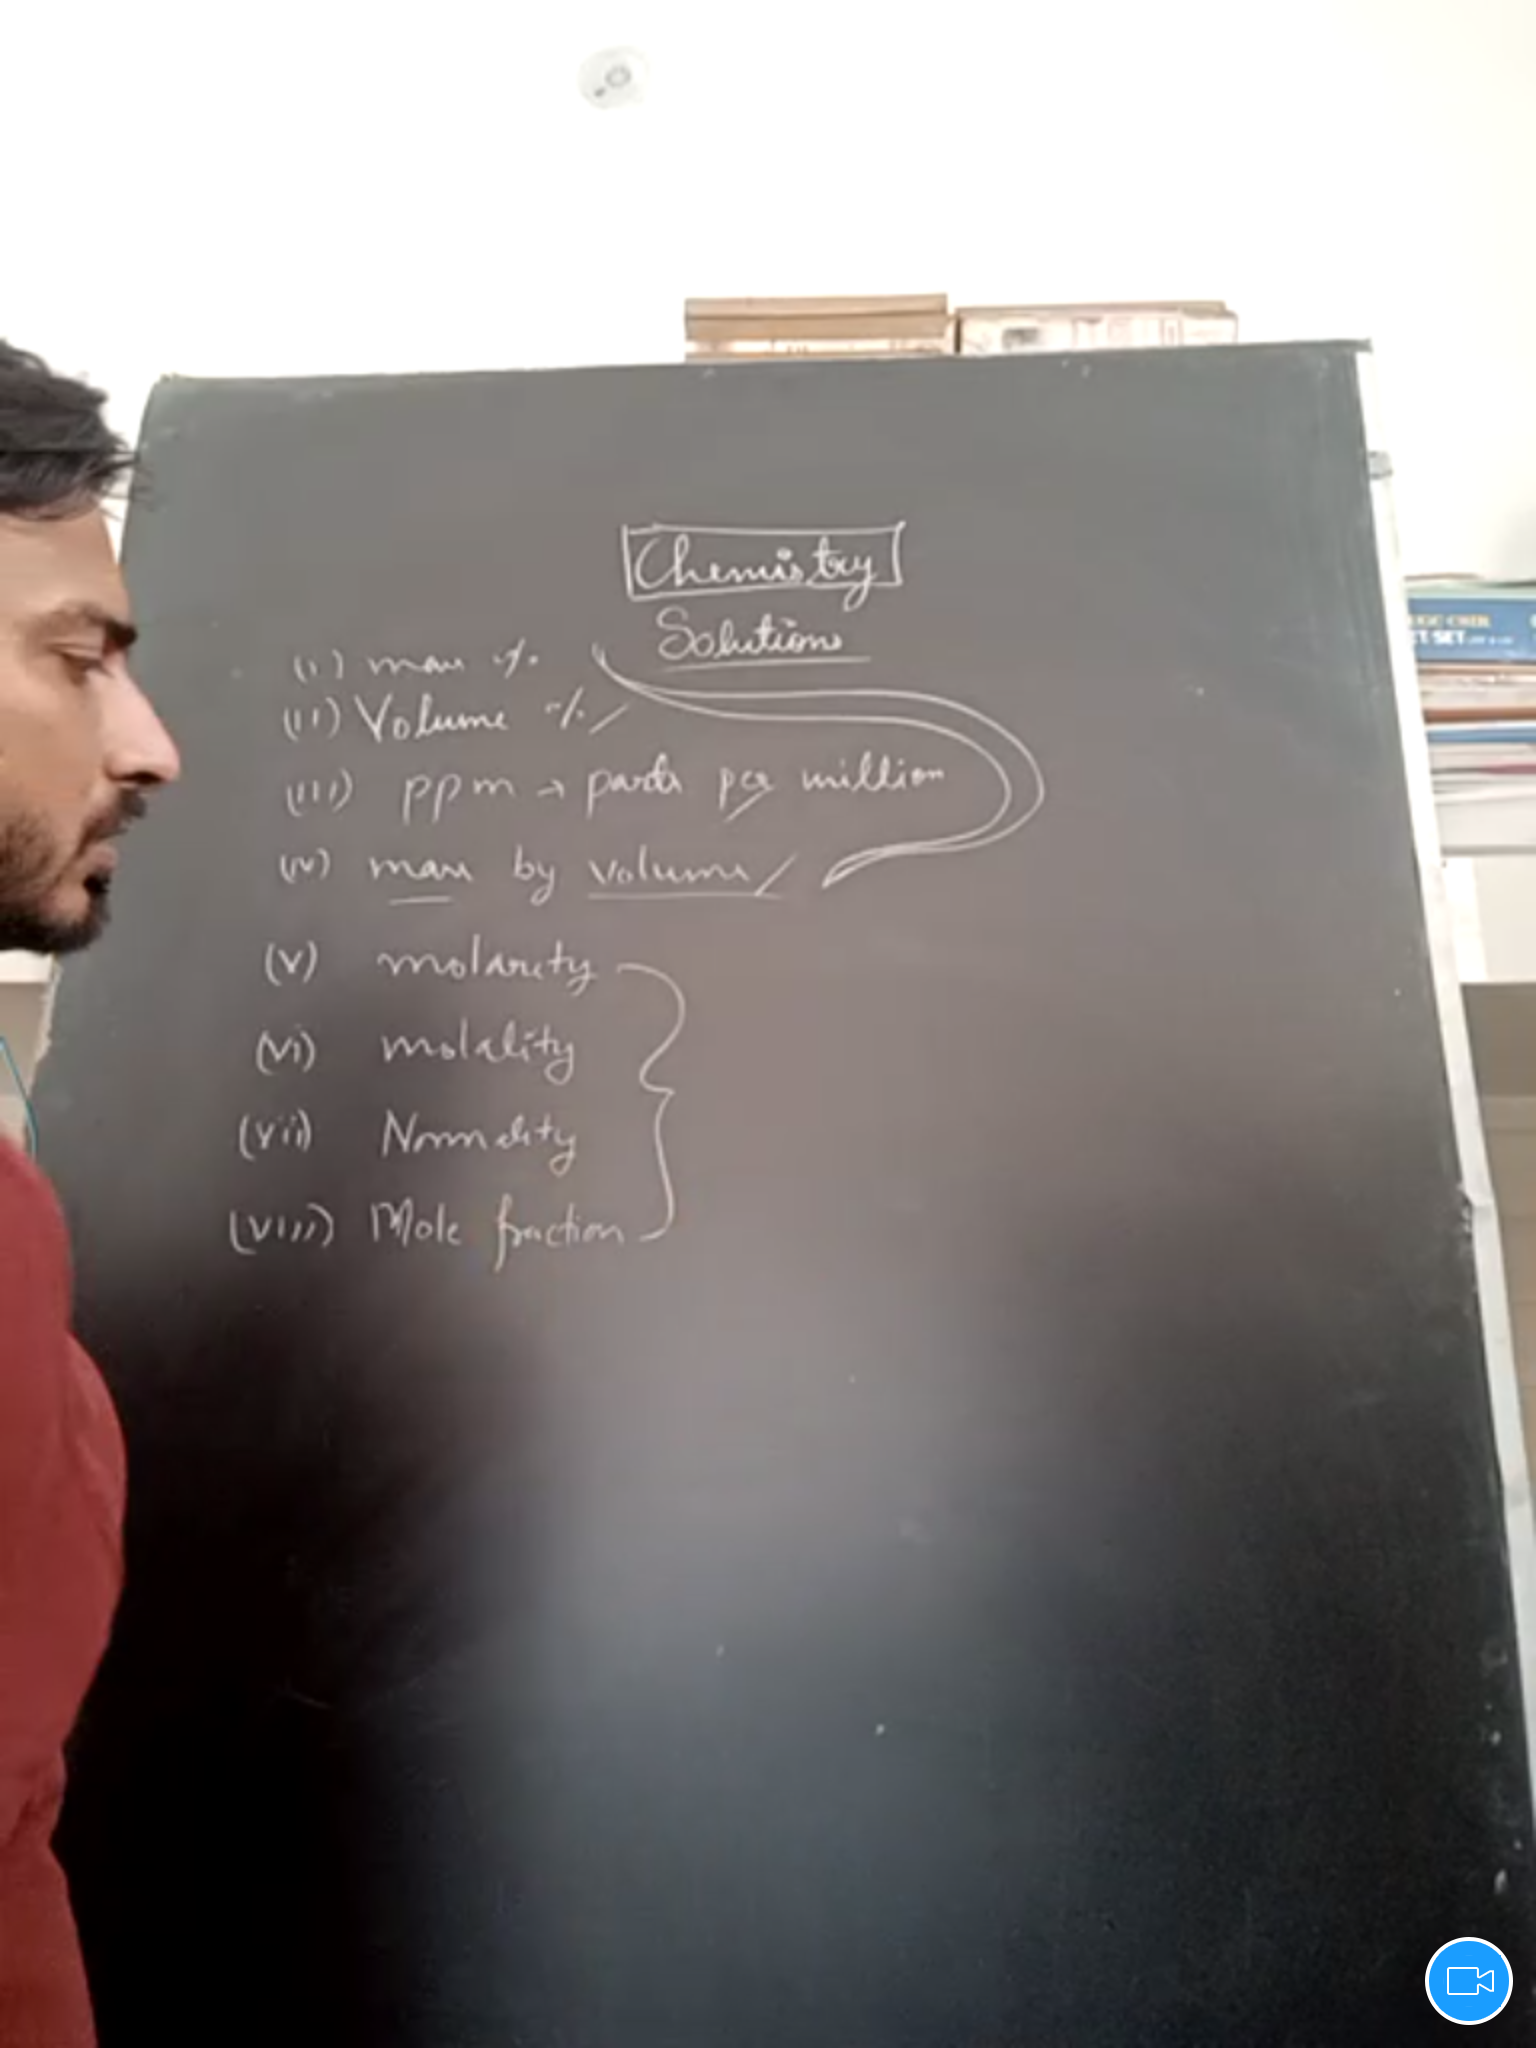 Chemistry
Solutions
(i) mass %
(ii) Volume %
(iii) ppm → parts per million
(iv) mass by volume
(v) molarity
(vi) molality
(vii) Normality
(viii) Mole fraction
UGC-CSIR
SET